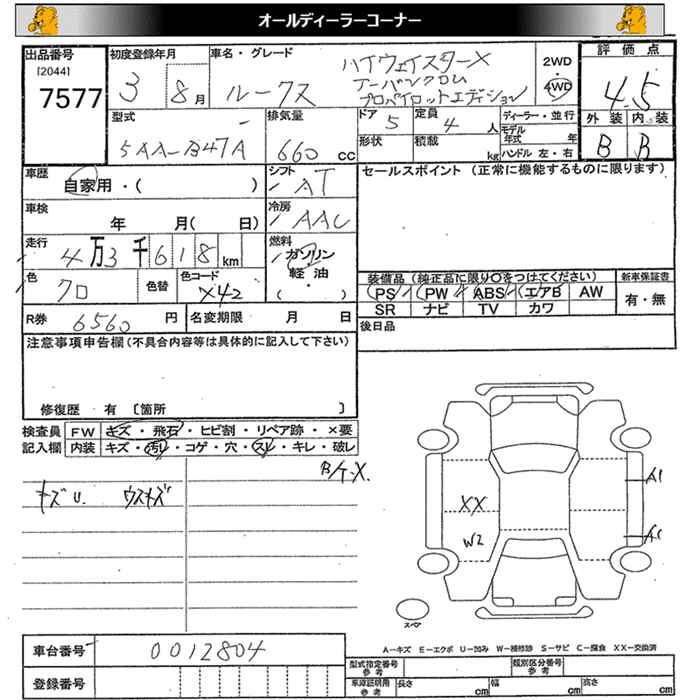 オールディーラーコーナー
出品番号
[2044]
7577
初度登録年月
3 8月
車名・グレード
ルークス
ハイウェイスターX
アーバンクロム
プロパイロットエディション
2WD
・
4WD
評価点
4.5
外装 内装
B B
型式
5AA-B47A
排気量
660 cc
ドア
5
定員
4 人
形状
積載
kg
ディーラー・並行
モデル年式 年
ハンドル 左・右
車歴
自家用・( )
シフト
AT
セールスポイント (正常に機能するものに限ります)
車検
年 月( 日)
冷房
AAC
走行
4万3千618km
燃料
ガソリン
軽油
・
( )
色
クロ
色替
色コード
X42
装備品 (純正品に限り○をつけてください)
PS PW ABS エアB AW
SR ナビ TV カワ
新車保証書
有・無
R券
6560 円
名変期限 月 日
後日品
注意事項申告欄 (不具合内容等は具体的に記入して下さい)
修復歴 有 〔箇所 〕
検査員
記入欄
FW キズ・飛石・ヒビ割・リペア跡・×要
内装 キズ・汚れ・コゲ・穴・スレ・キレ・破レ
キズU. ウスキズ
B/ケ-X.
XX
W2
A1
A1
スペア
A-キズ E-エクボ U-凹み W-補修跡 S-サビ C-腐食 XX-交換済
車台番号
0012804
登録番号
型式指定番号
参考
類別区分番号
参考
車庫証明用
参考
長さ cm 幅 cm 高さ cm